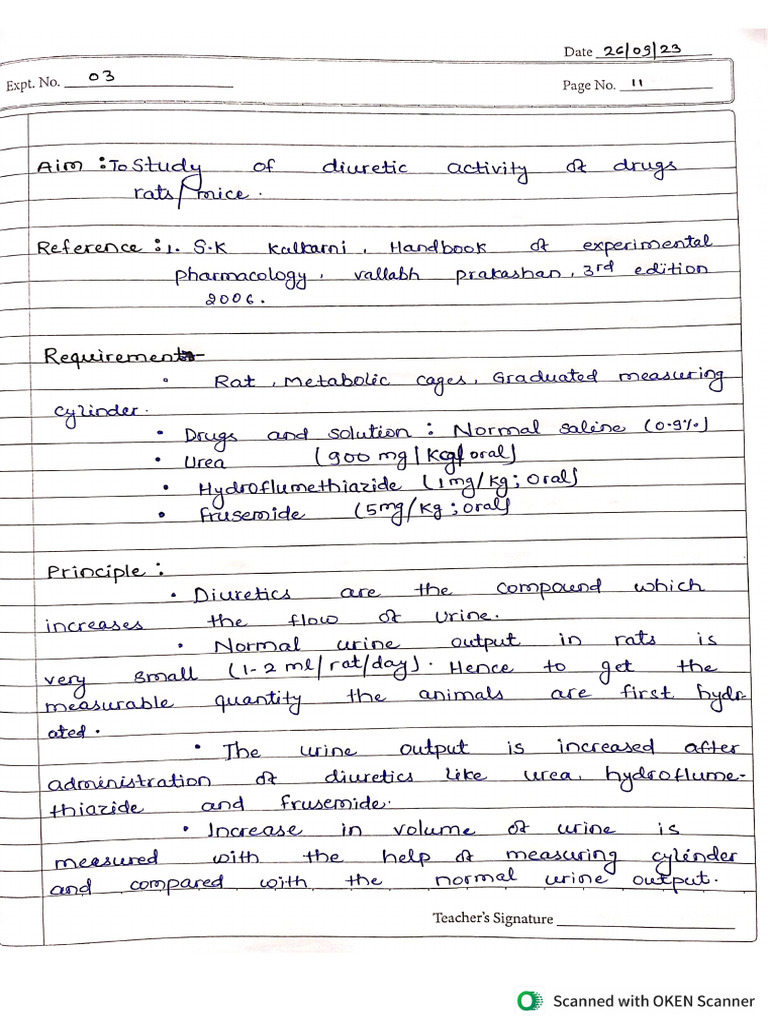 Date 26/09/23
Expt. No. 03
Page No. 11
Aim : To Study of diuretic activity of drugs
rats/mice.
Reference : 1. S.K Kalkarni, Handbook of experimental
pharmacology, vallabh prakashan, 3rd edition
2006.
Requirements-
• Rat, Metabolic cages, Graduated measuring
cylinder.
• Drugs and solution : Normal saline (0.9%)
• Urea (900 mg/kg/oral)
• Hydroflumethiazide (1mg/kg; oral)
• Frusemide (5mg/kg; oral)
Principle :
• Diuretics are the compound which
increases the flow of urine.
• Normal urine output in rats is
very small (1-2 ml/rat/day). Hence to get the
measurable quantity the animals are first hydr-
ated.
• The urine output is increased after
administration of diuretics like urea, hydroflume-
thiazide and frusemide.
• Increase in volume of urine is
measured with the help of measuring cylinder
and compared with the normal urine output.
Teacher's Signature
Scanned with OKEN Scanner